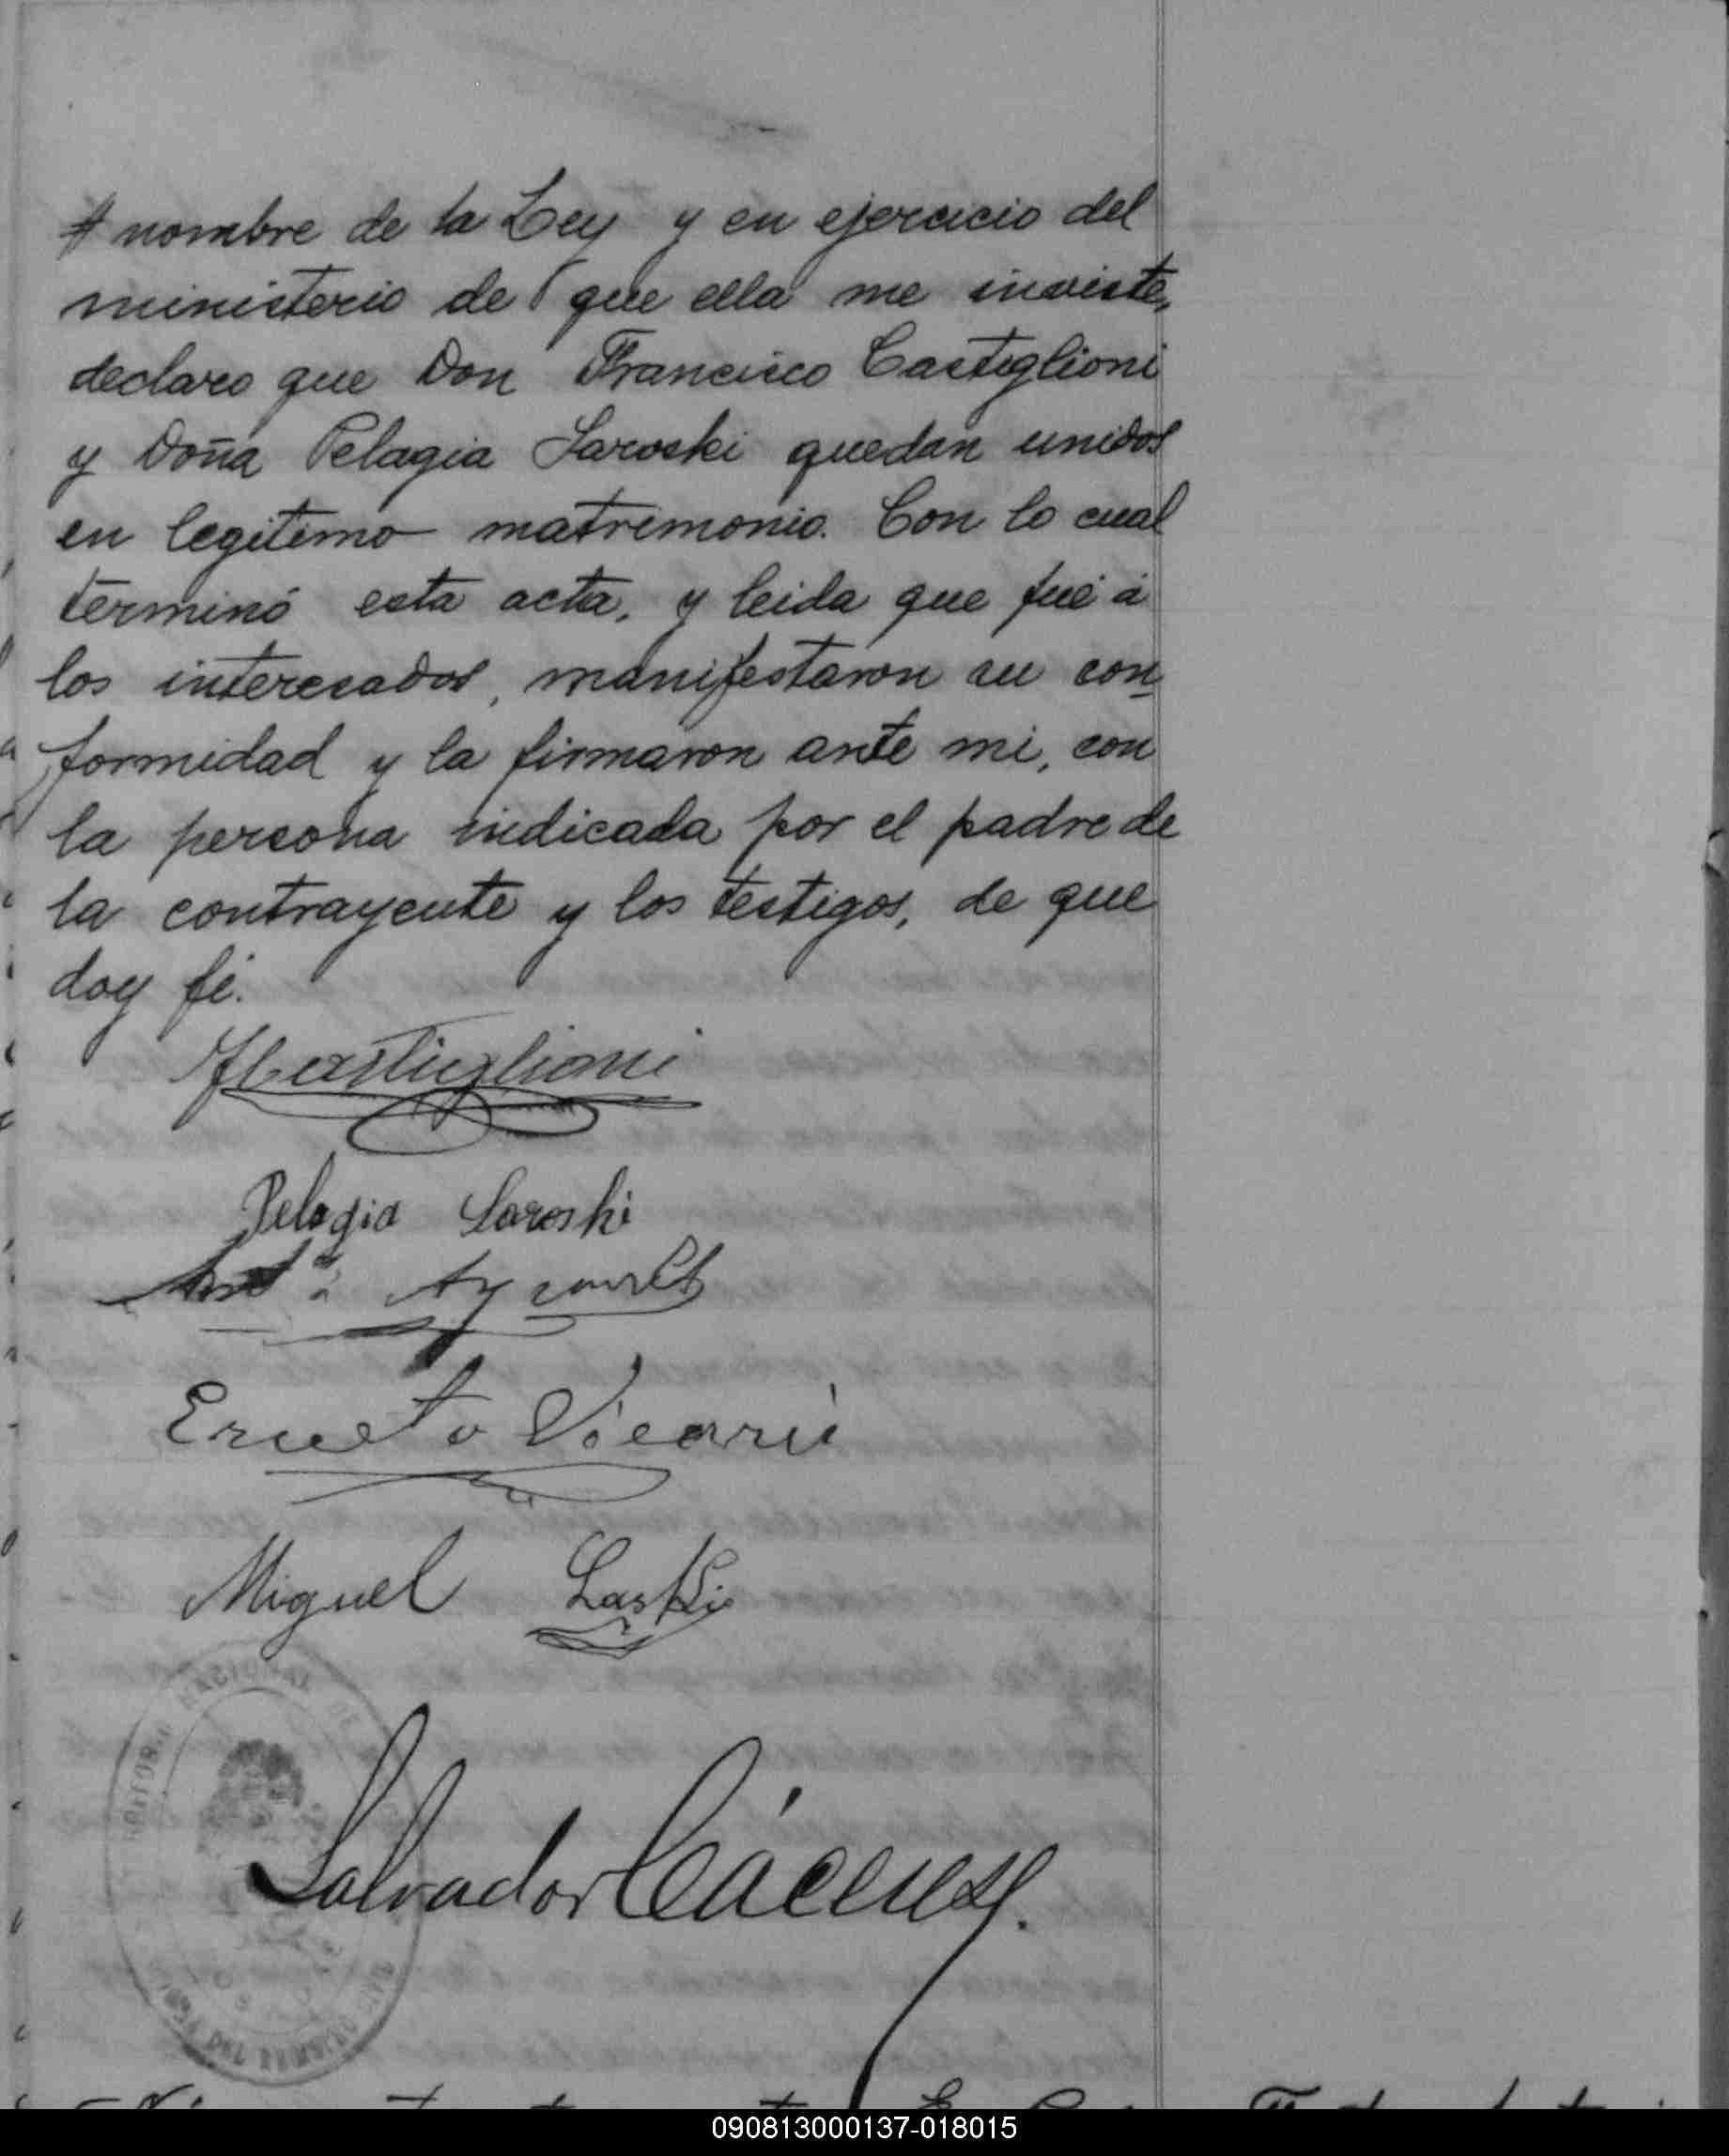 A nombre de la Ley y en ejercicio del
ministerio de que ella me inviste,
declaro que Don Francisco Castiglioni
y Doña Pelagia Saroski quedan unidos
en legitimo matrimonio. Con lo cual
terminó esta acta, y leida que fué á
los interesados, manifestaron su con
formidad y la firmaron ante mi, con
la persona indicada por el padre de
la contrayente y los testigos, de que
doy fé.
FCastiglioni
Pelagia Saroski
Ernesto Vicario
Miguel Laski
NACIONAL DE
Salvador
090813000137-018015